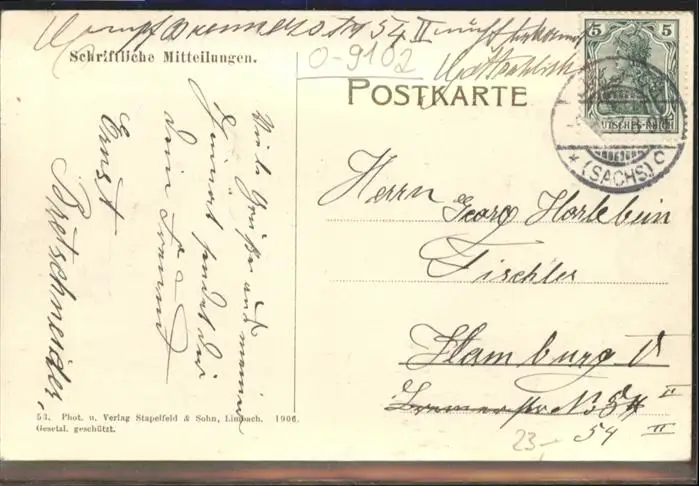 54 II
Schriftliche Mitteilungen.
0-9102
POSTKARTE
5 5
DEUTSCHES REICH
* (SACHS) c
Viele Grüße und meine
sendet dir
dein Freund
Ernst
Bretschneider,
Herrn Georg Horlebein
Tischler
Hamburg V
II
54 II
23,-
53. Phot. u. Verlag Stapelfeld & Sohn, Limbach. 1906.
Gesetzl. geschützt.